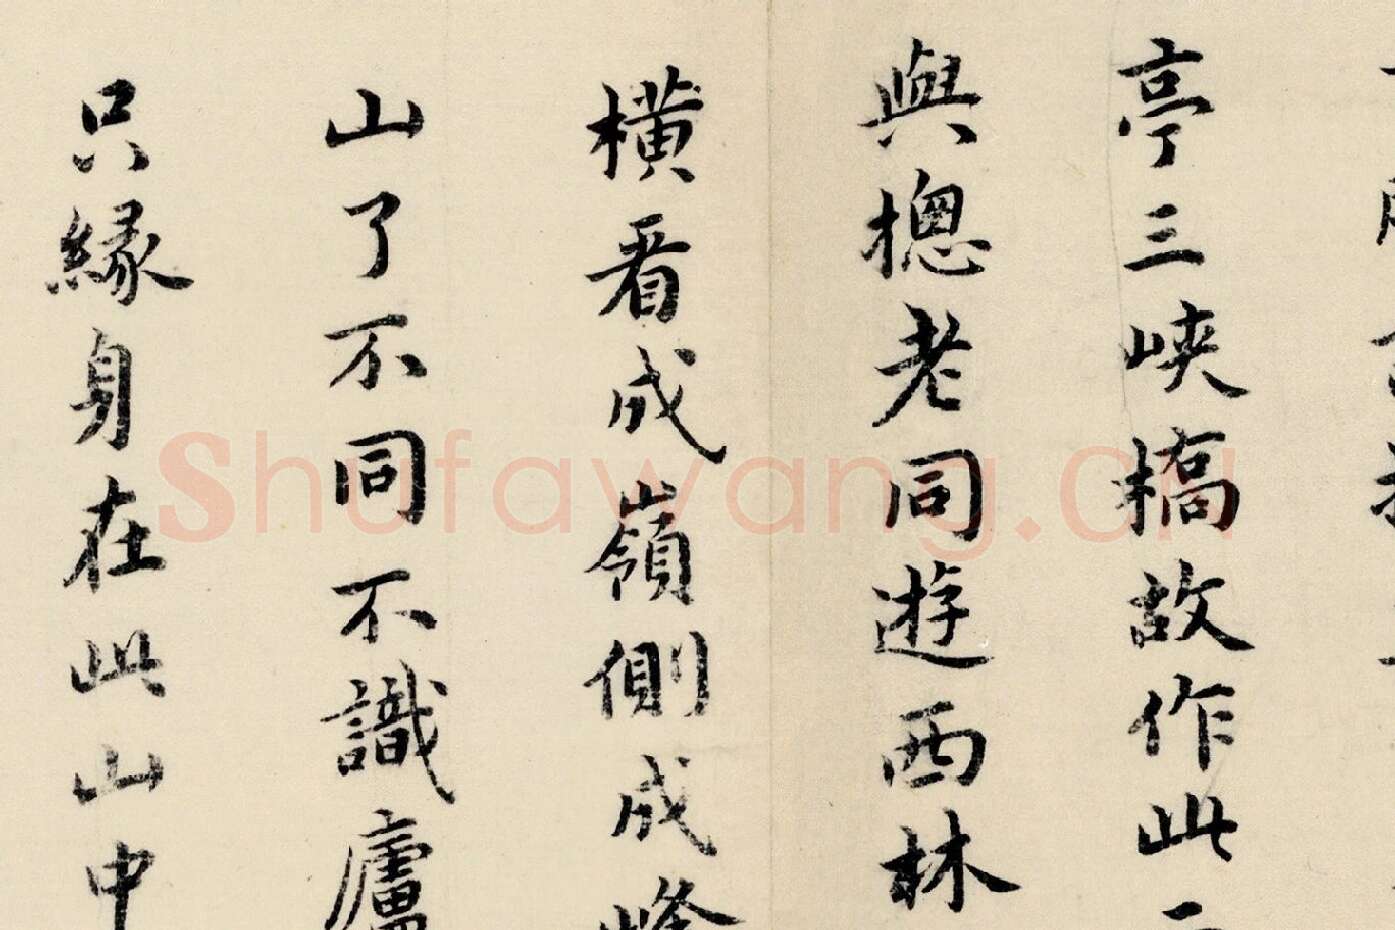 亭三峽橋故作此二
與揔老同遊西林
橫看成嶺側成峰
山了不同不識廬
只緣身在此山中
Shufawang.cn